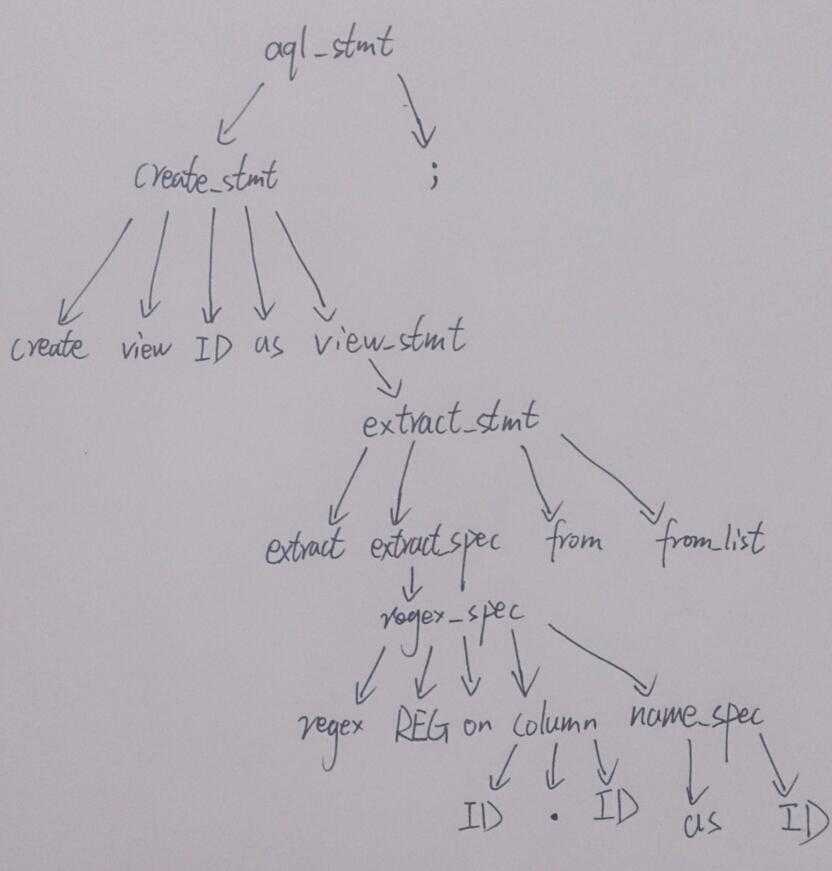 aql_stmt
create_stmt ;
create view ID as view_stmt
extract_stmt
extract extract_spec from from_list
regex_spec
regex REG on column name_spec
ID . ID as ID